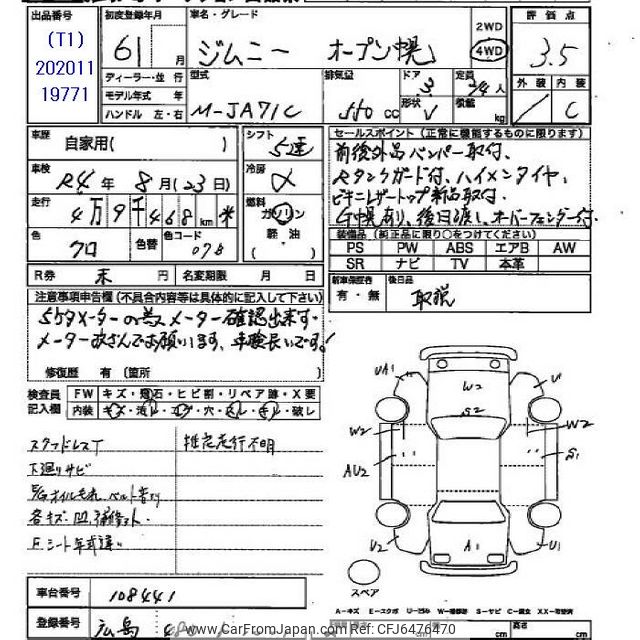 出品番号
(T1)
202011
19771
初度登録年月
61 月
車名・グレード
ジムニー オープン幌
2WD
4WD
評価点
3.5
ディーラー・並行
モデル年式 年
ハンドル 左・右
型式
M-JA71C
排気量
550 cc
ドア 3
形状 V
定員
人
積載
kg
外装 内装
C
車歴
自家用( )
シフト
5速
車検
R4 年 8月(23日)
冷房
走行
4万9千468 km
燃料
ガソリン
軽油
( )
色
クロ
色替
色コード
078
セールスポイント(正常に機能するものに限ります)
前後外品バンパー取付、
タンクガード付、ハイメンタイヤ、
ビキニレザートップ新品取付、
幌あり、後日渡し、オーバーフェンダー付、
装備品(純正品に限り○をつけてください)
PS PW ABS エアB AW
SR ナビ TV 本革
R券 未 年 月 日
名変期限 月 日
新車保証書
有・無
後日品
取説
注意事項申告欄(不具合内容等は具体的に記入して下さい)
5ケタメーターの為メーター確認出来ず・
メーター改ざんでお願いします、車検長いです!
修復歴 有(箇所 )
検査員
記入欄
FW キズ・飛石・ヒビ割・リペア跡・X要
内装 キズ・汚レ・コゲ・穴・破レ
スタッドレスT
推定走行不明
下廻りサビ
E/Gオイルもれ、ベルト鳴り
各キズ、凹、補修有ト、
F、シート年式違い
車台番号
108441
登録番号
広島
UA1
W2
U1
S2
W2
W2
AU2
S1
U2
A1
U1
スペア
A-キズ E-エクボ U-凹み W-補修跡 S-サビ C-腐食 XX-取替済
cm cm 高さ cm
www.CarFromJapan.com Ref: CFJ6476470